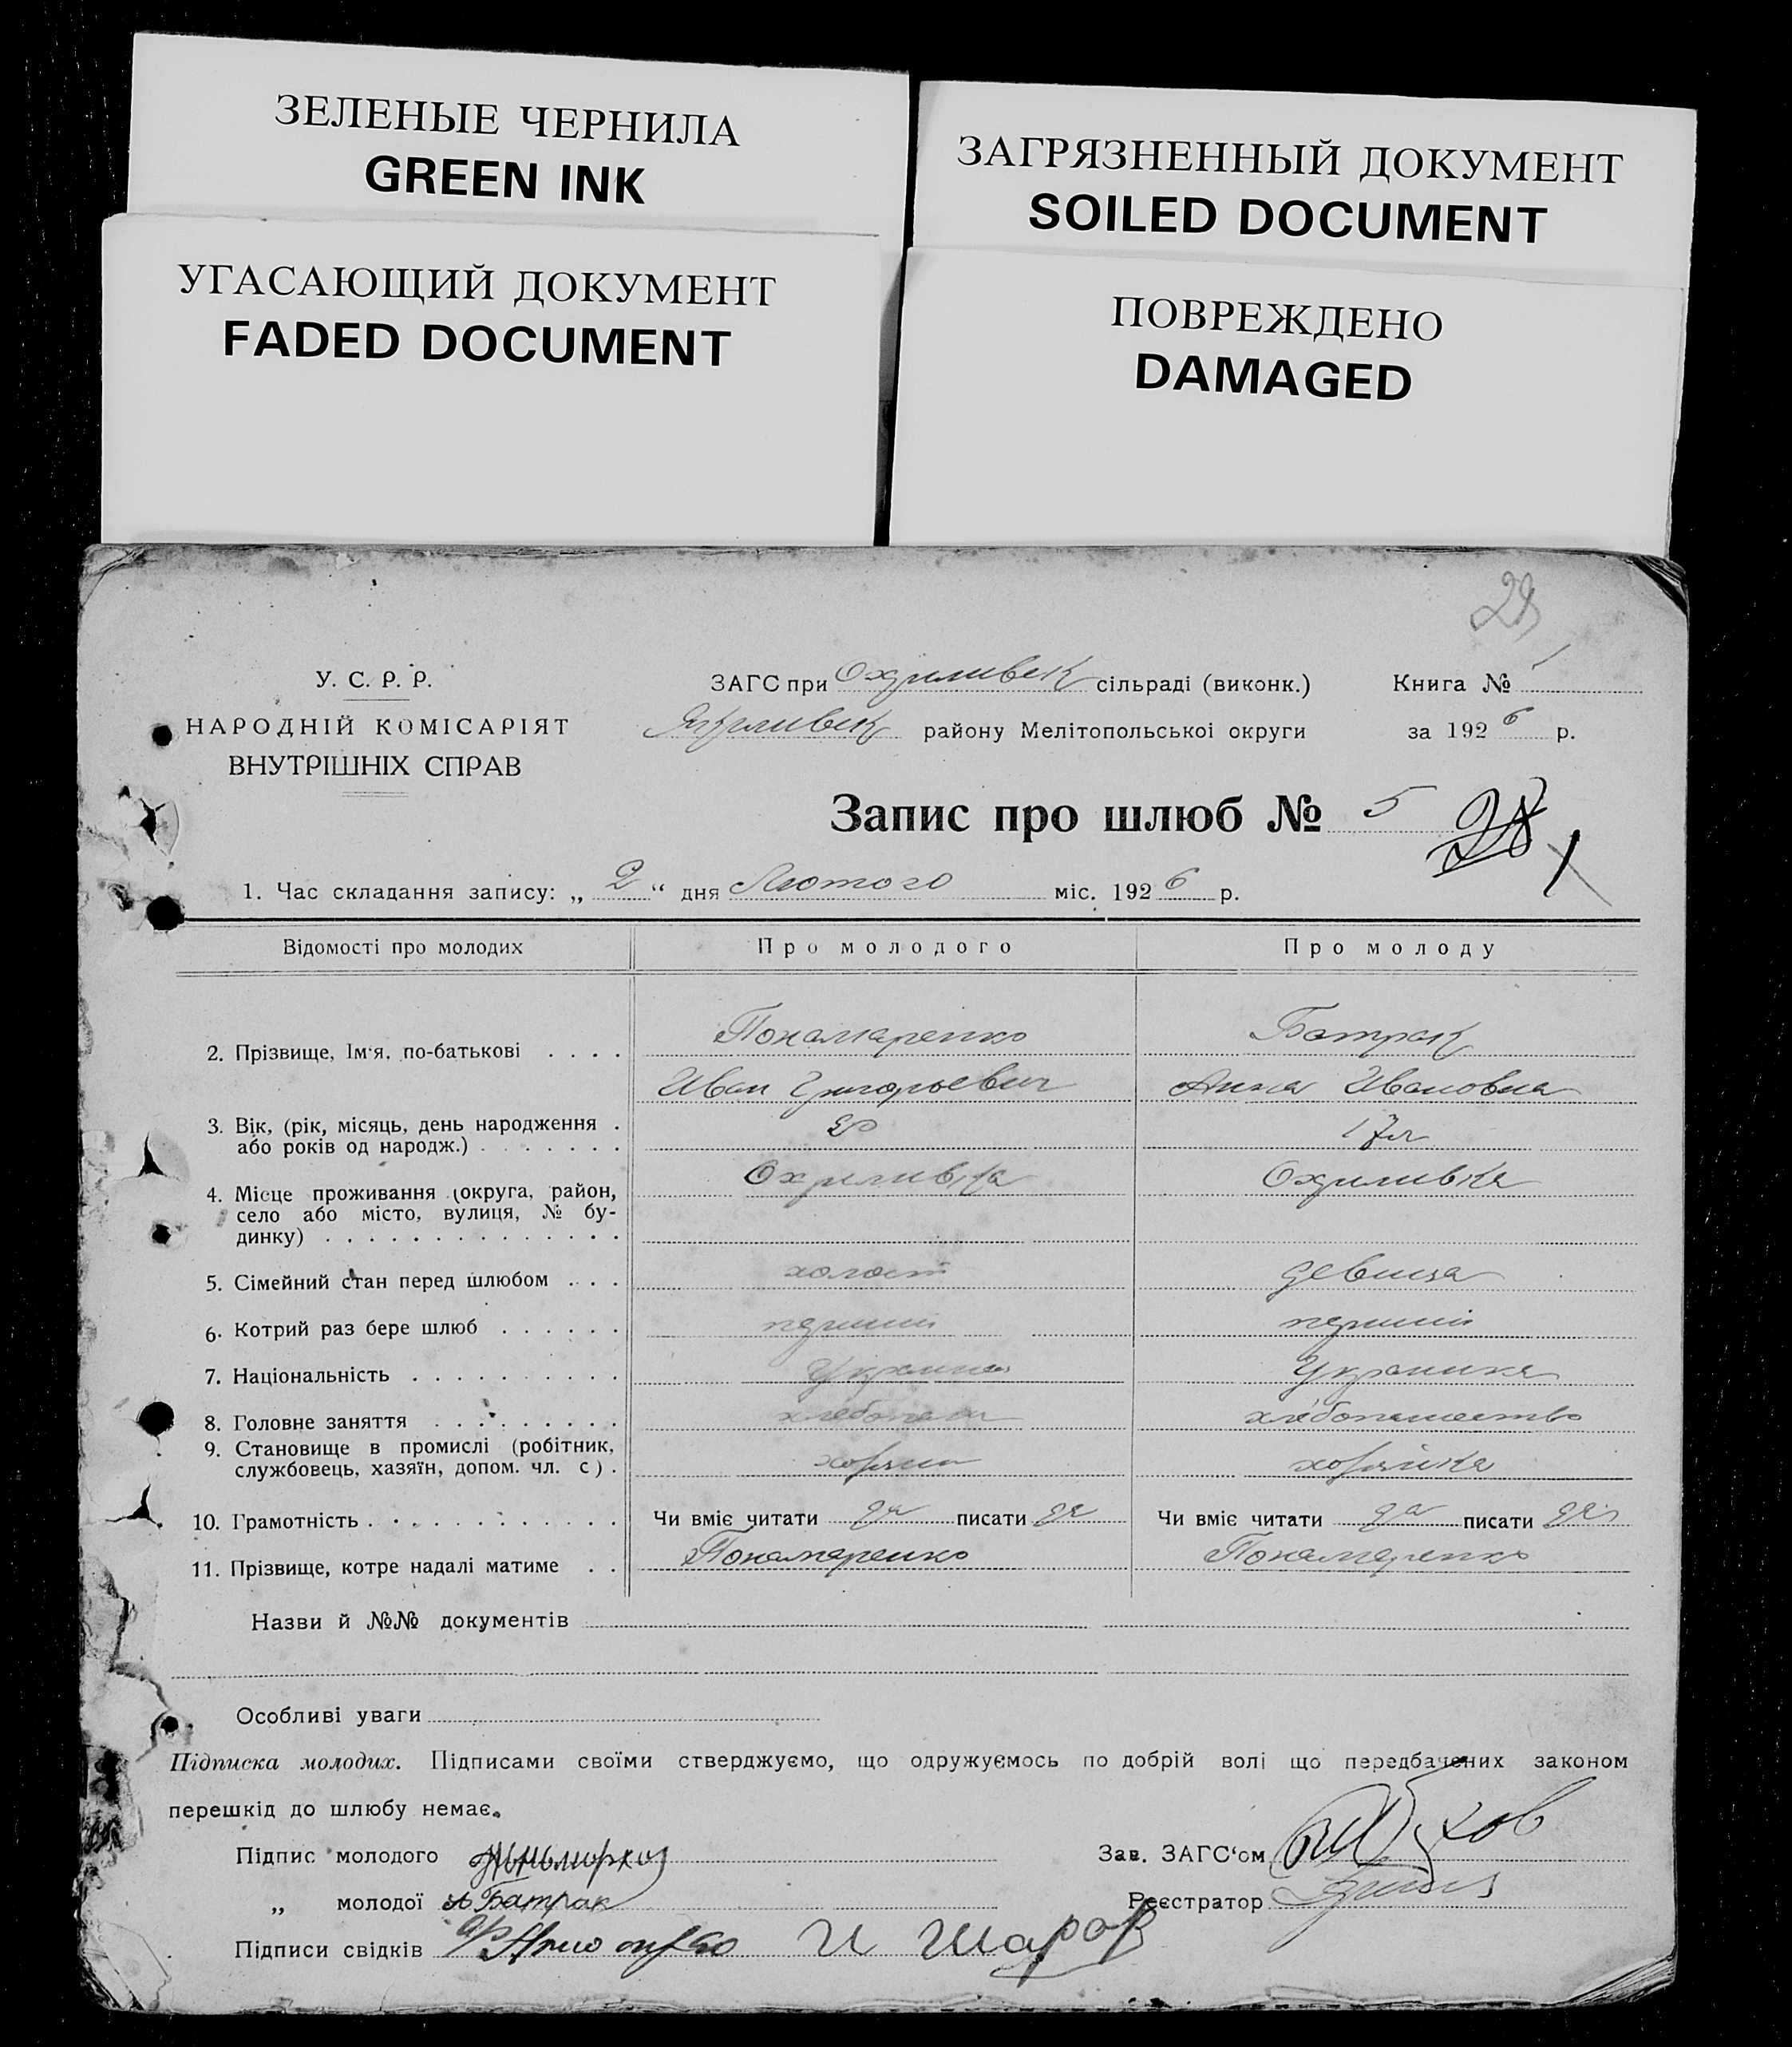 ЗЕЛЕНЫЕ ЧЕРНИЛА
GREEN INK
ЗАГРЯЗНЕННЫЙ ДОКУМЕНТ
SOILED DOCUMENT
УГАСАЮЩИЙ ДОКУМЕНТ
FADED DOCUMENT
ПОВРЕЖДЕНО
DAMAGED
28
У. С. Р. Р.
НАРОДНІЙ КОМІСАРІЯТ
ВНУТРІШНІХ СПРАВ
ЗАГС при сільраді (виконк.)
району Мелітопольської округи
Книга № 1
за 1926 р.
Запис про шлюб № 5 28
1. Час складання запису: „ 2 “ дня Лютого міс. 1926 р.
Відомості про молодих Про молодого Про молоду
2. Прізвище, Ім'я, по-батькові . . . . Пономаренко Батрак
Иван Григорьевич Анна Ивановна
3. Вік, (рік, місяць, день народження . 17л
або років од народж.) . . . . . . .
4. Місце проживання (округа, район, Охримивка Охримивка
село або місто, вулиця, № бу-
динку) . . . . . . . . . . . . . .
5. Сімейний стан перед шлюбом . . . холост девица
6. Котрий раз бере шлюб . . . . . . перший перший
7. Національність . . . . . . . . . .
8. Головне заняття . . . . . . . . . хлебопашество
9. Становище в промислі (робітник,
службовець, хазяїн, допом. чл. с) . хозяин хозяйка
10. Грамотність . . . . . . . . . . . Чи вміє читати да писати да Чи вміє читати да писати да
11. Прізвище, котре надалі матиме . . Пономаренко Пономаренко
Назви й №№ документів
Особливі уваги
Підписка молодих. Підписами своїми стверджуємо, що одружуємось по добрій волі що передбачених законом
перешкід до шлюбу немає.
Підпис молодого
Зав. ЗАГС'ом
„ молодої Батрак
Реєстратор
Підписи свідків И Шаров